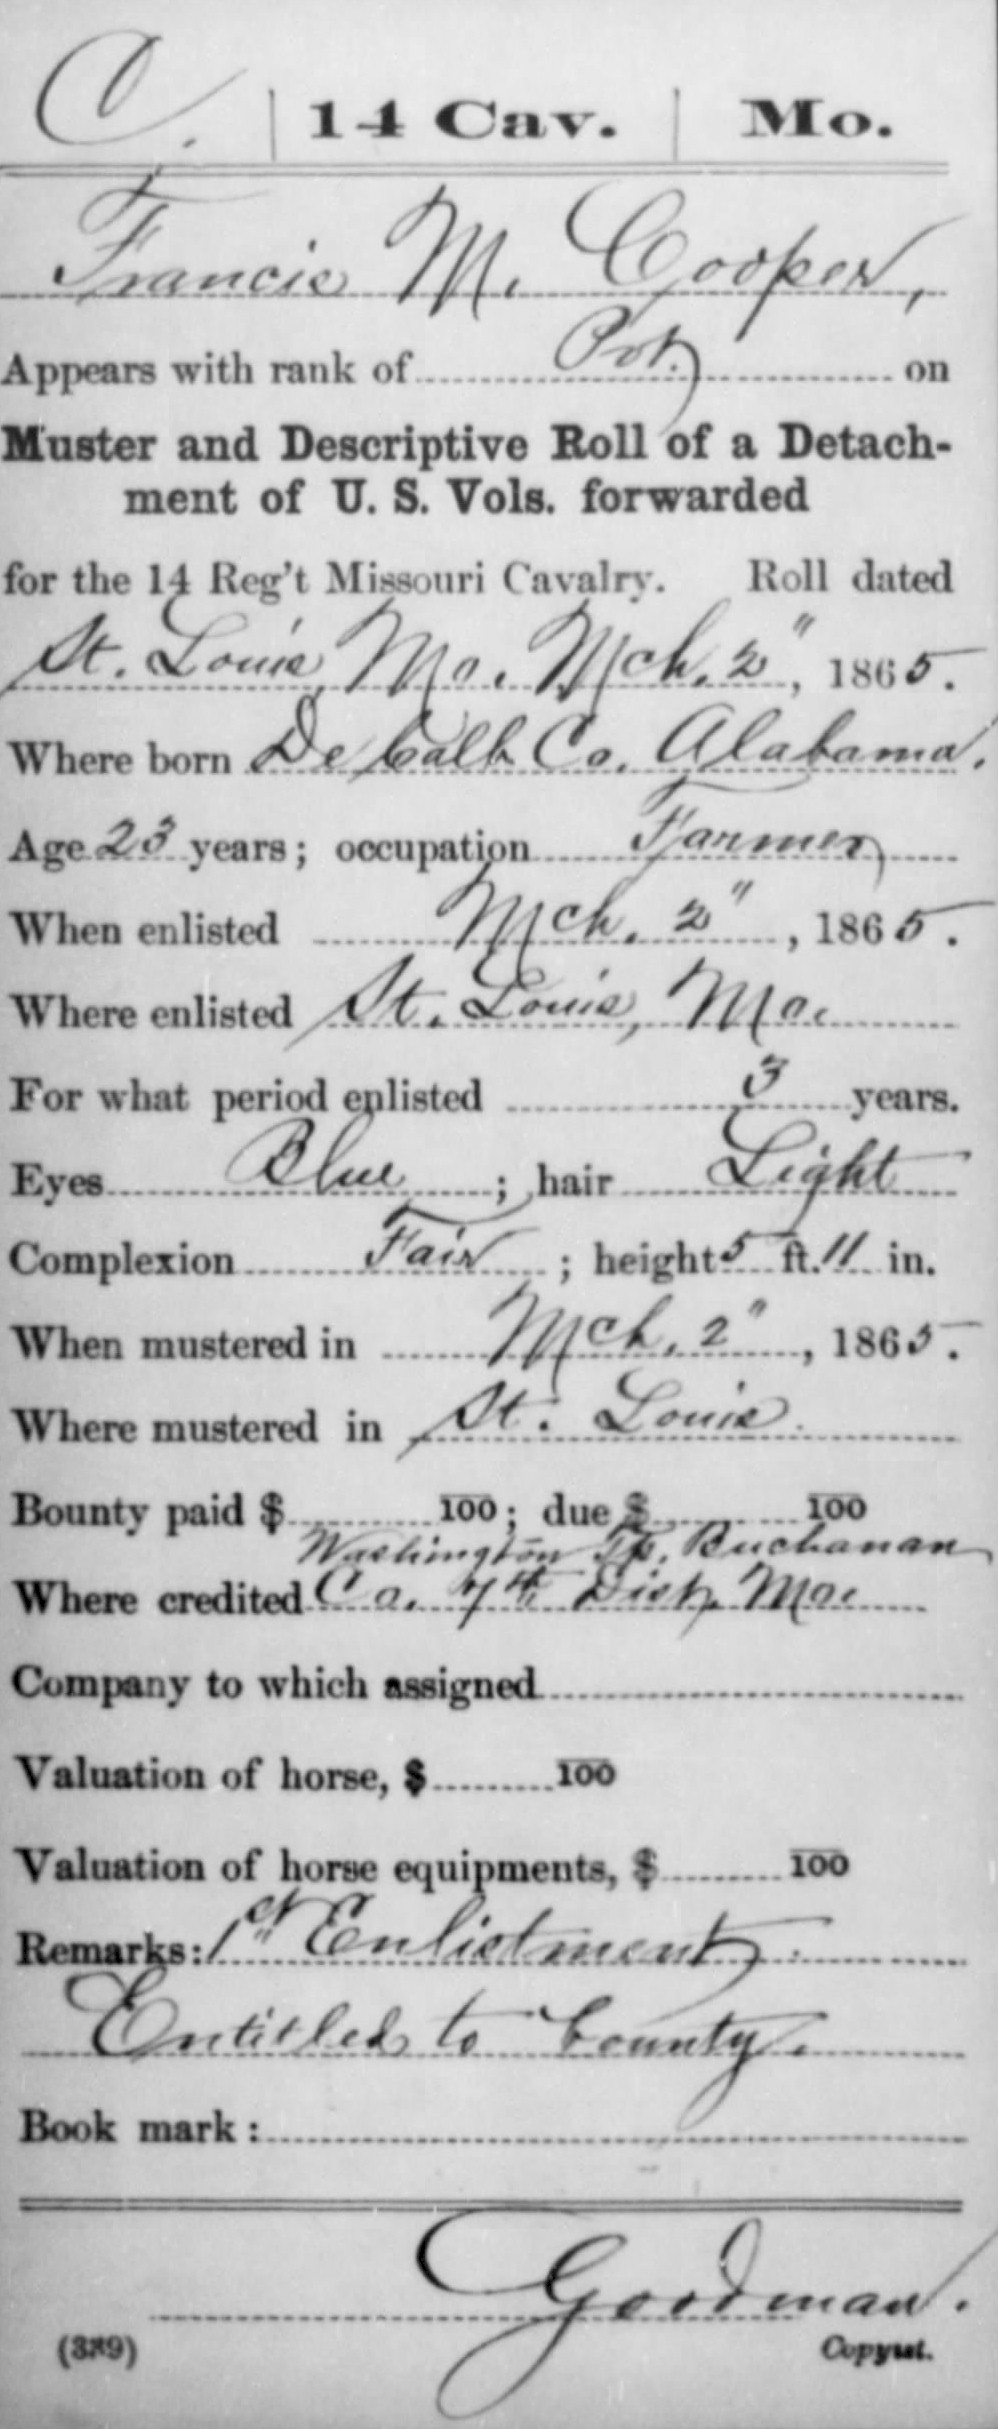 C. | 14 Cav. | Mo.
Francis M. Cooper,
Appears with rank of Pvt. on
Muster and Descriptive Roll of a Detach-
ment of U. S. Vols. forwarded
for the 14 Reg't Missouri Cavalry. Roll dated
St. Louis, Mo. Mch. 2", 1865.
Where born De Calb Co. Alabama.
Age 23 years; occupation Farmer
When enlisted Mch. 2", 1865.
Where enlisted St. Louis, Mo.
For what period enlisted 3 years.
Eyes Blue; hair Light
Complexion Fair; height 5 ft. 11 in.
When mustered in Mch. 2", 1865.
Where mustered in St. Louis.
Bounty paid $ 100; due $ 100
Washington Tp. Buchanan
Where credited Co. 7th Dist. Mo.
Company to which assigned
Valuation of horse, $ 100
Valuation of horse equipments, $ 100
Remarks: 1st Enlistment.
Entitled to bounty.
Book mark:
Goodman.
(389) Copyist.